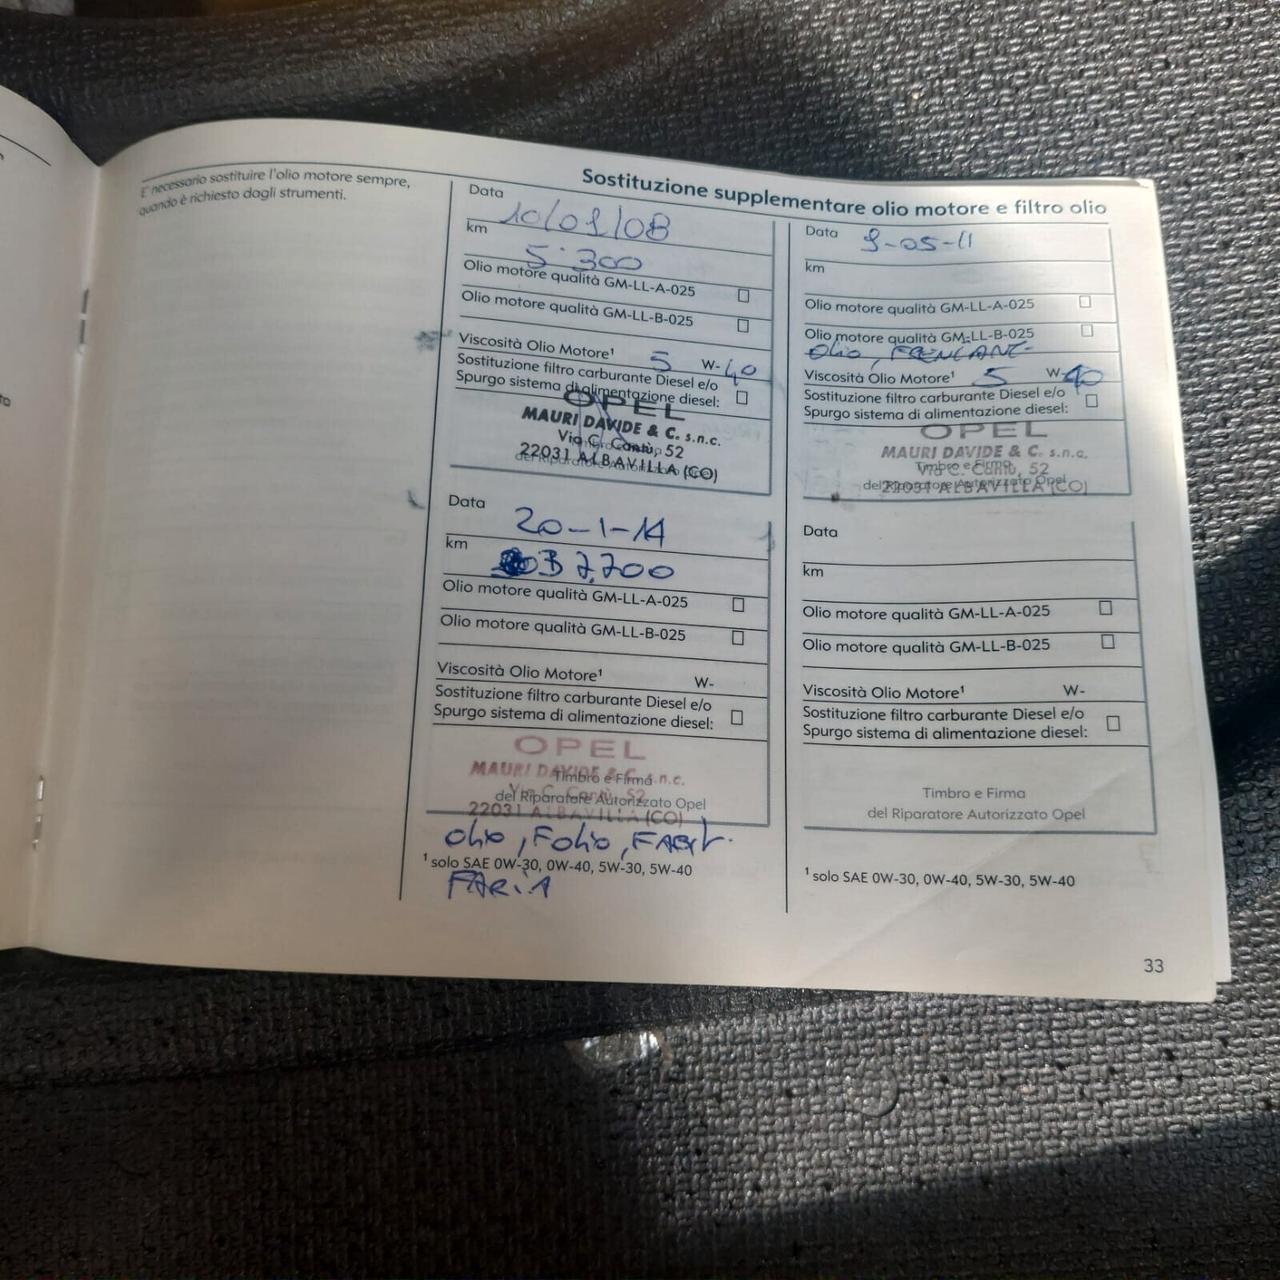 E' necessario sostituire l'olio motore sempre,
quando è richiesto dagli strumenti.
Sostituzione supplementare olio motore e filtro olio
Data 10/01/08
km 5.300
Olio motore qualità GM-LL-A-025
Olio motore qualità GM-LL-B-025
Viscosità Olio Motore¹ 5 W-40
Sostituzione filtro carburante Diesel e/o
Spurgo sistema di alimentazione diesel:
OPEL
MAURI DAVIDE & C. s.n.c.
Via C. Cantù, 52
22031 ALBAVILLA (CO)
Data 20-1-14
km 37.700
Olio motore qualità GM-LL-A-025
Olio motore qualità GM-LL-B-025
Viscosità Olio Motore¹ W-
Sostituzione filtro carburante Diesel e/o
Spurgo sistema di alimentazione diesel:
OPEL
MAURI DAVIDE & C. s.n.c.
Timbro e Firma
Via C. Cantù, 52
del Riparatore Autorizzato Opel
22031 ALBAVILLA (CO)
Olio, Folio,
¹ solo SAE 0W-30, 0W-40, 5W-30, 5W-40
Data 9-05-11
km
Olio motore qualità GM-LL-A-025
Olio motore qualità GM-LL-B-025
Olio,
Viscosità Olio Motore¹ 5 W-40
Sostituzione filtro carburante Diesel e/o
Spurgo sistema di alimentazione diesel:
OPEL
MAURI DAVIDE & C. s.n.c.
Timbro e Firma
Via C. Cantù, 52
del Riparatore Autorizzato Opel
22031 ALBAVILLA (CO)
Data
km
Olio motore qualità GM-LL-A-025
Olio motore qualità GM-LL-B-025
Viscosità Olio Motore¹ W-
Sostituzione filtro carburante Diesel e/o
Spurgo sistema di alimentazione diesel:
Timbro e Firma
del Riparatore Autorizzato Opel
¹ solo SAE 0W-30, 0W-40, 5W-30, 5W-40
33